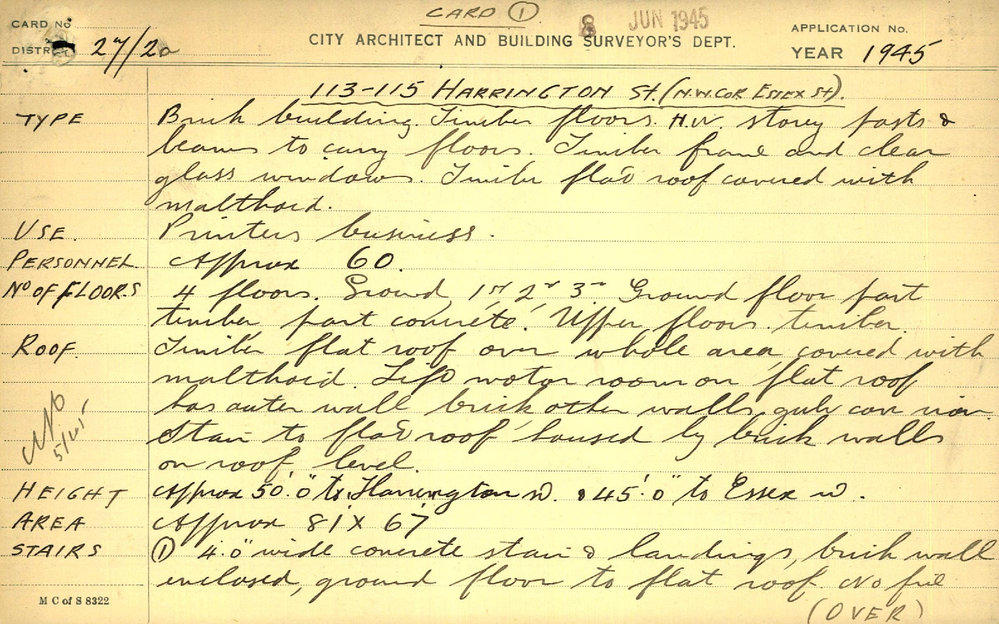 CARD ①
8 JUN 1945
CARD No
DISTRICT 27/2a
CITY ARCHITECT AND BUILDING SURVEYOR'S DEPT.
APPLICATION No.
YEAR 1945
113-115 HARRINGTON St. (N.W. COR ESSEX St).
TYPE Brick building. Timber floors. H.W. storey posts &
beams to carry floors. Timber frame and clear
glass windows. Timber flat roof covered with
malthoid.
USE. Printers business.
PERSONNEL. Approx 60.
No OF FLOORS 4 floors. Ground, 1st 2nd 3rd Ground floor part
timber part concrete. Upper floors timber.
ROOF. Timber flat roof over whole area covered with
malthoid. Lift motor room on flat roof
has outer wall brick other walls galv corr iron
Stair to flat roof housed by brick walls
on roof level.
5/1/45
HEIGHT Approx 50'.0" to Harrington St. & 45'.0" to Essex St.
AREA Approx 81' x 67'
STAIRS ① 4'.0" wide concrete stair & landings, brick wall
enclosed, ground floor to flat roof No fire
M C of S 8322
(OVER)